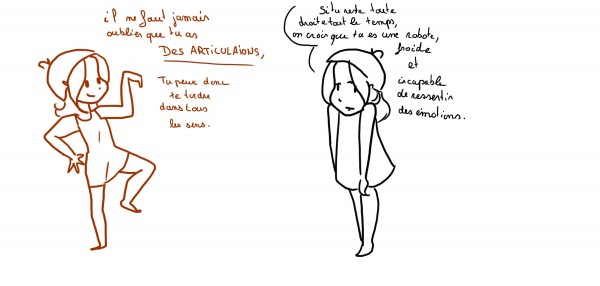 il ne faut jamais
oublier que tu as
DES ARTICULAIONS,
Tu peux donc
te tordre
dans tous
les sens.
Si tu reste toute
droite tout le temps,
on croit que tu es une robote,
froide
et
incapable
de ressentir
des émotions.